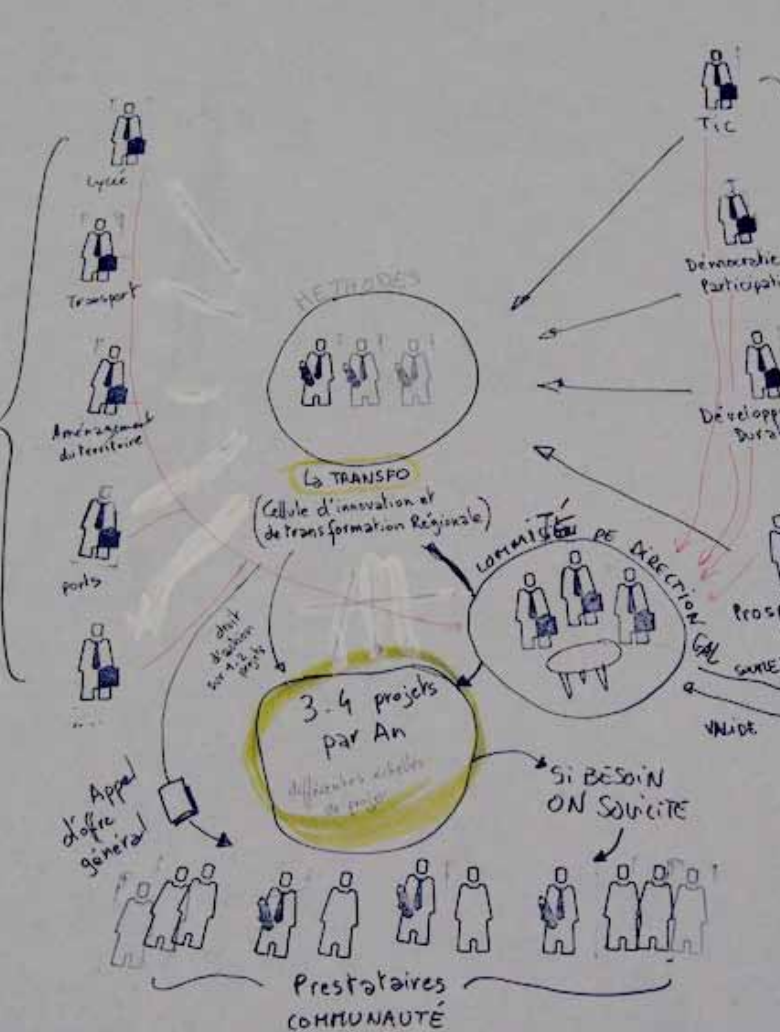 Lycée
Transport
Aménagement
du territoire
ports
.....
TIC
Démocratie
Participati
Développ
Dura
Prosp
MÉTHODES
La TRANSFO
(Cellule d'innovation et
de transformation Régionale)
COMMITÉ DE DIRECTION GAL
VALIDE
droit
d'action
sur 1.2
projets
3.4 projets
par An
différentes échelles
de projet
SI BESOIN
ON SOLICITE
Appel
d'offre
général
Prestataires
COMMUNAUTÉ